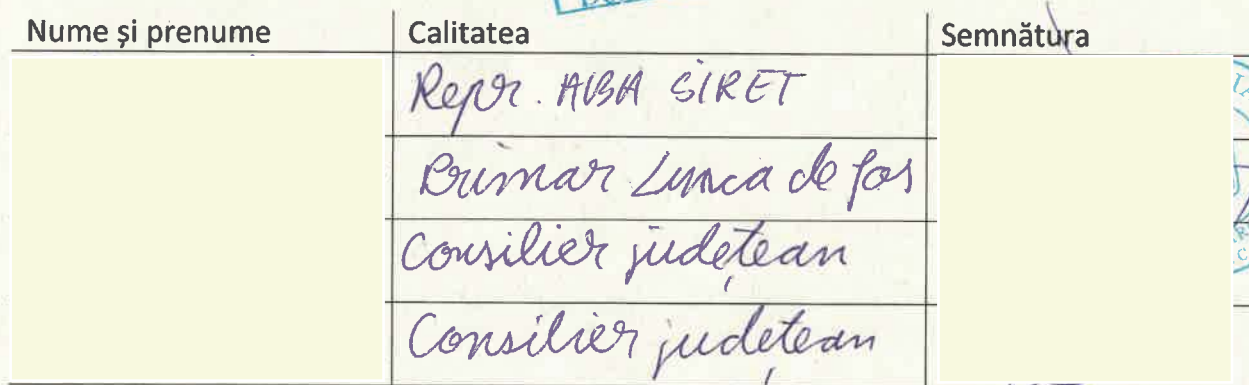 Nume și prenume Calitatea Semnătura
Repr. ABA SIRET
Primar Lunca de Jos
Consilier județean
Consilier județean